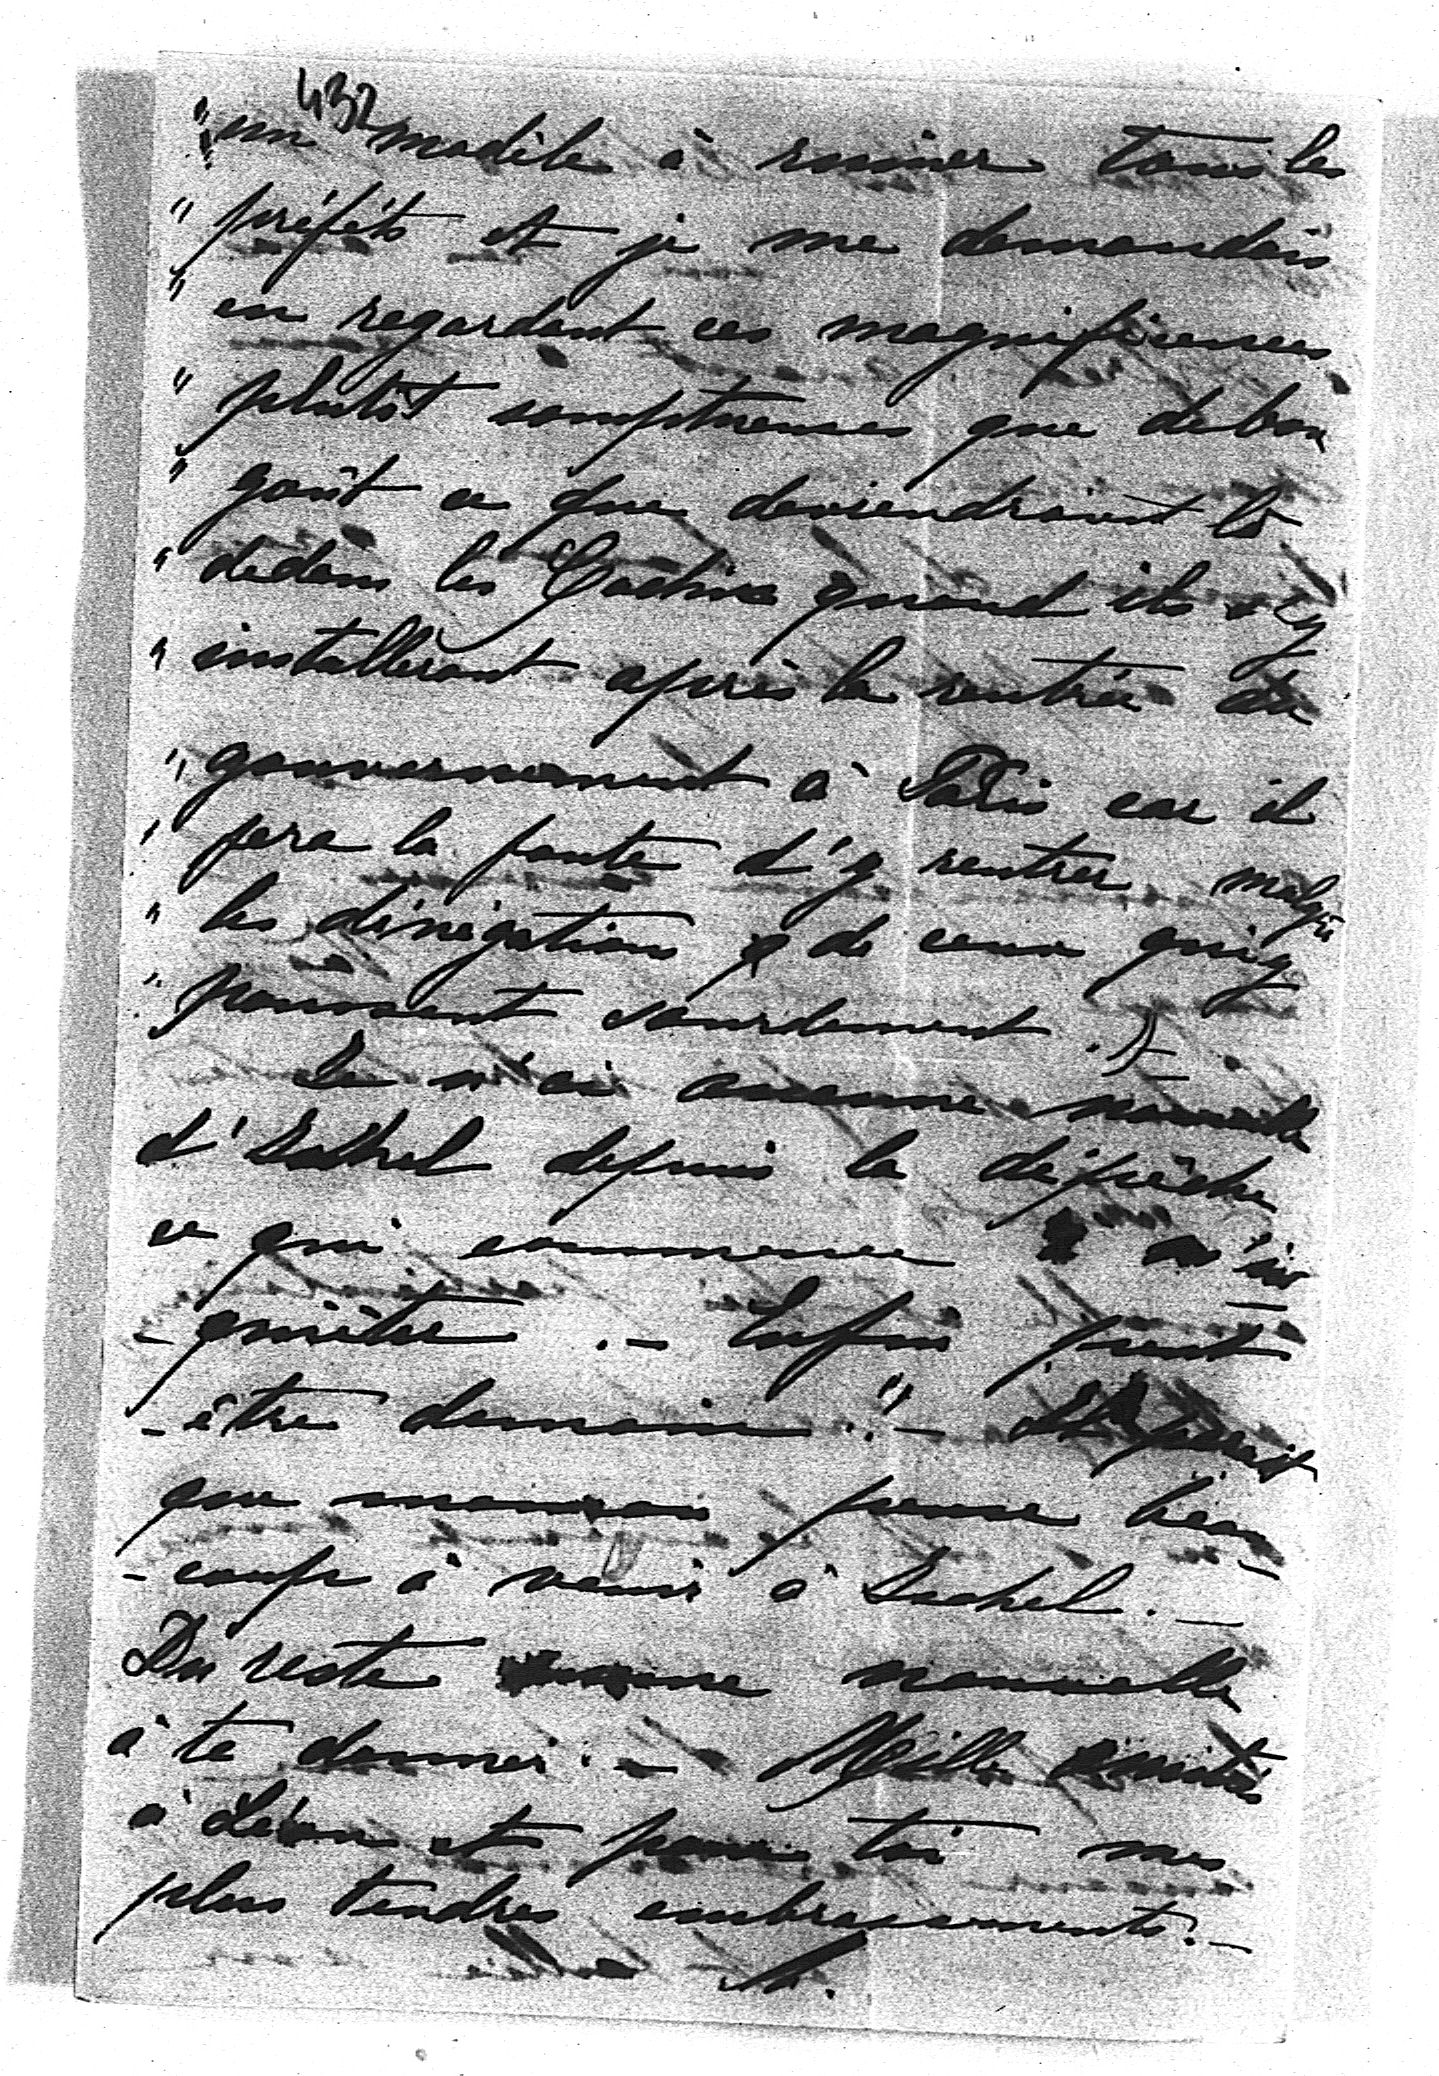 432
" un modèle à ruiner tous les
" préfets et je me demandais
" en regardant ces magnificences
" plutôt somptueuses que de bon
" goût ce que deviendraient là
" dedans les quand ils s'y
" installeront après la rentrée du
" gouvernement à Paris car il
" fera la faute d'y rentrer malgré
" les dénégations de ceux qui y
" poussent sourdement. "
Je n'ai aucune nouvelle
d' depuis la dépêche
ce qui commence à m'in
- quiéter. — Enfin peut
- être demain ! " — Il paraît
que maman pense beau
- coup à venir à . —
Du reste aucune nouvelle
à te donner. — Mille amitiés
à Léon et pour toi mes
plus tendres embrassements. —
M.